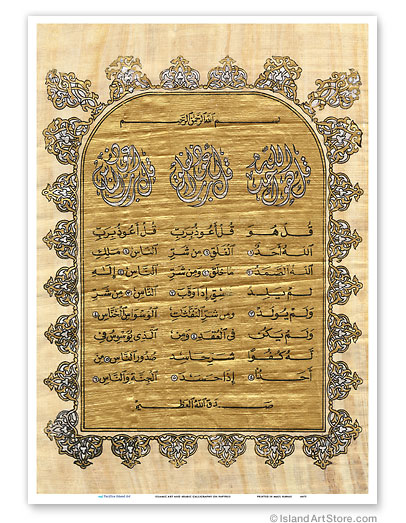 بسم الله الرحمن الرحيم
قل هو الله أحد
قل أعوذ برب الفلق
قل أعوذ برب الناس
قُلْ هُوَ
اللَّهُ أَحَدٌ ①
اللَّهُ الصَّمَدُ ②
لَمْ يَلِدْ
وَلَمْ يُولَدْ ③
وَلَمْ يَكُن
لَّهُ كُفُوًا
أَحَدٌ ④
قُلْ أَعُوذُ بِرَبِّ
الْفَلَقِ ① مِن شَرِّ
مَا خَلَقَ ② وَمِن شَرِّ
غَاسِقٍ إِذَا وَقَبَ ③
وَمِن شَرِّ النَّفَّاثَاتِ
فِي الْعُقَدِ ④ وَمِن
شَرِّ حَاسِدٍ
إِذَا حَسَدَ ⑤
قُلْ أَعُوذُ بِرَبِّ
النَّاسِ ① مَلِكِ
النَّاسِ ② إِلَٰهِ
النَّاسِ ③ مِن شَرِّ
الْوَسْوَاسِ الْخَنَّاسِ ④
الَّذِي يُوَسْوِسُ فِي
صُدُورِ النَّاسِ ⑤ مِنَ
الْجِنَّةِ وَالنَّاسِ ⑥
صدق الله العظيم
ISLAMIC ART AND ARABIC CALLIGRAPHY ON PAPYRUS
© IslandArtStore.com